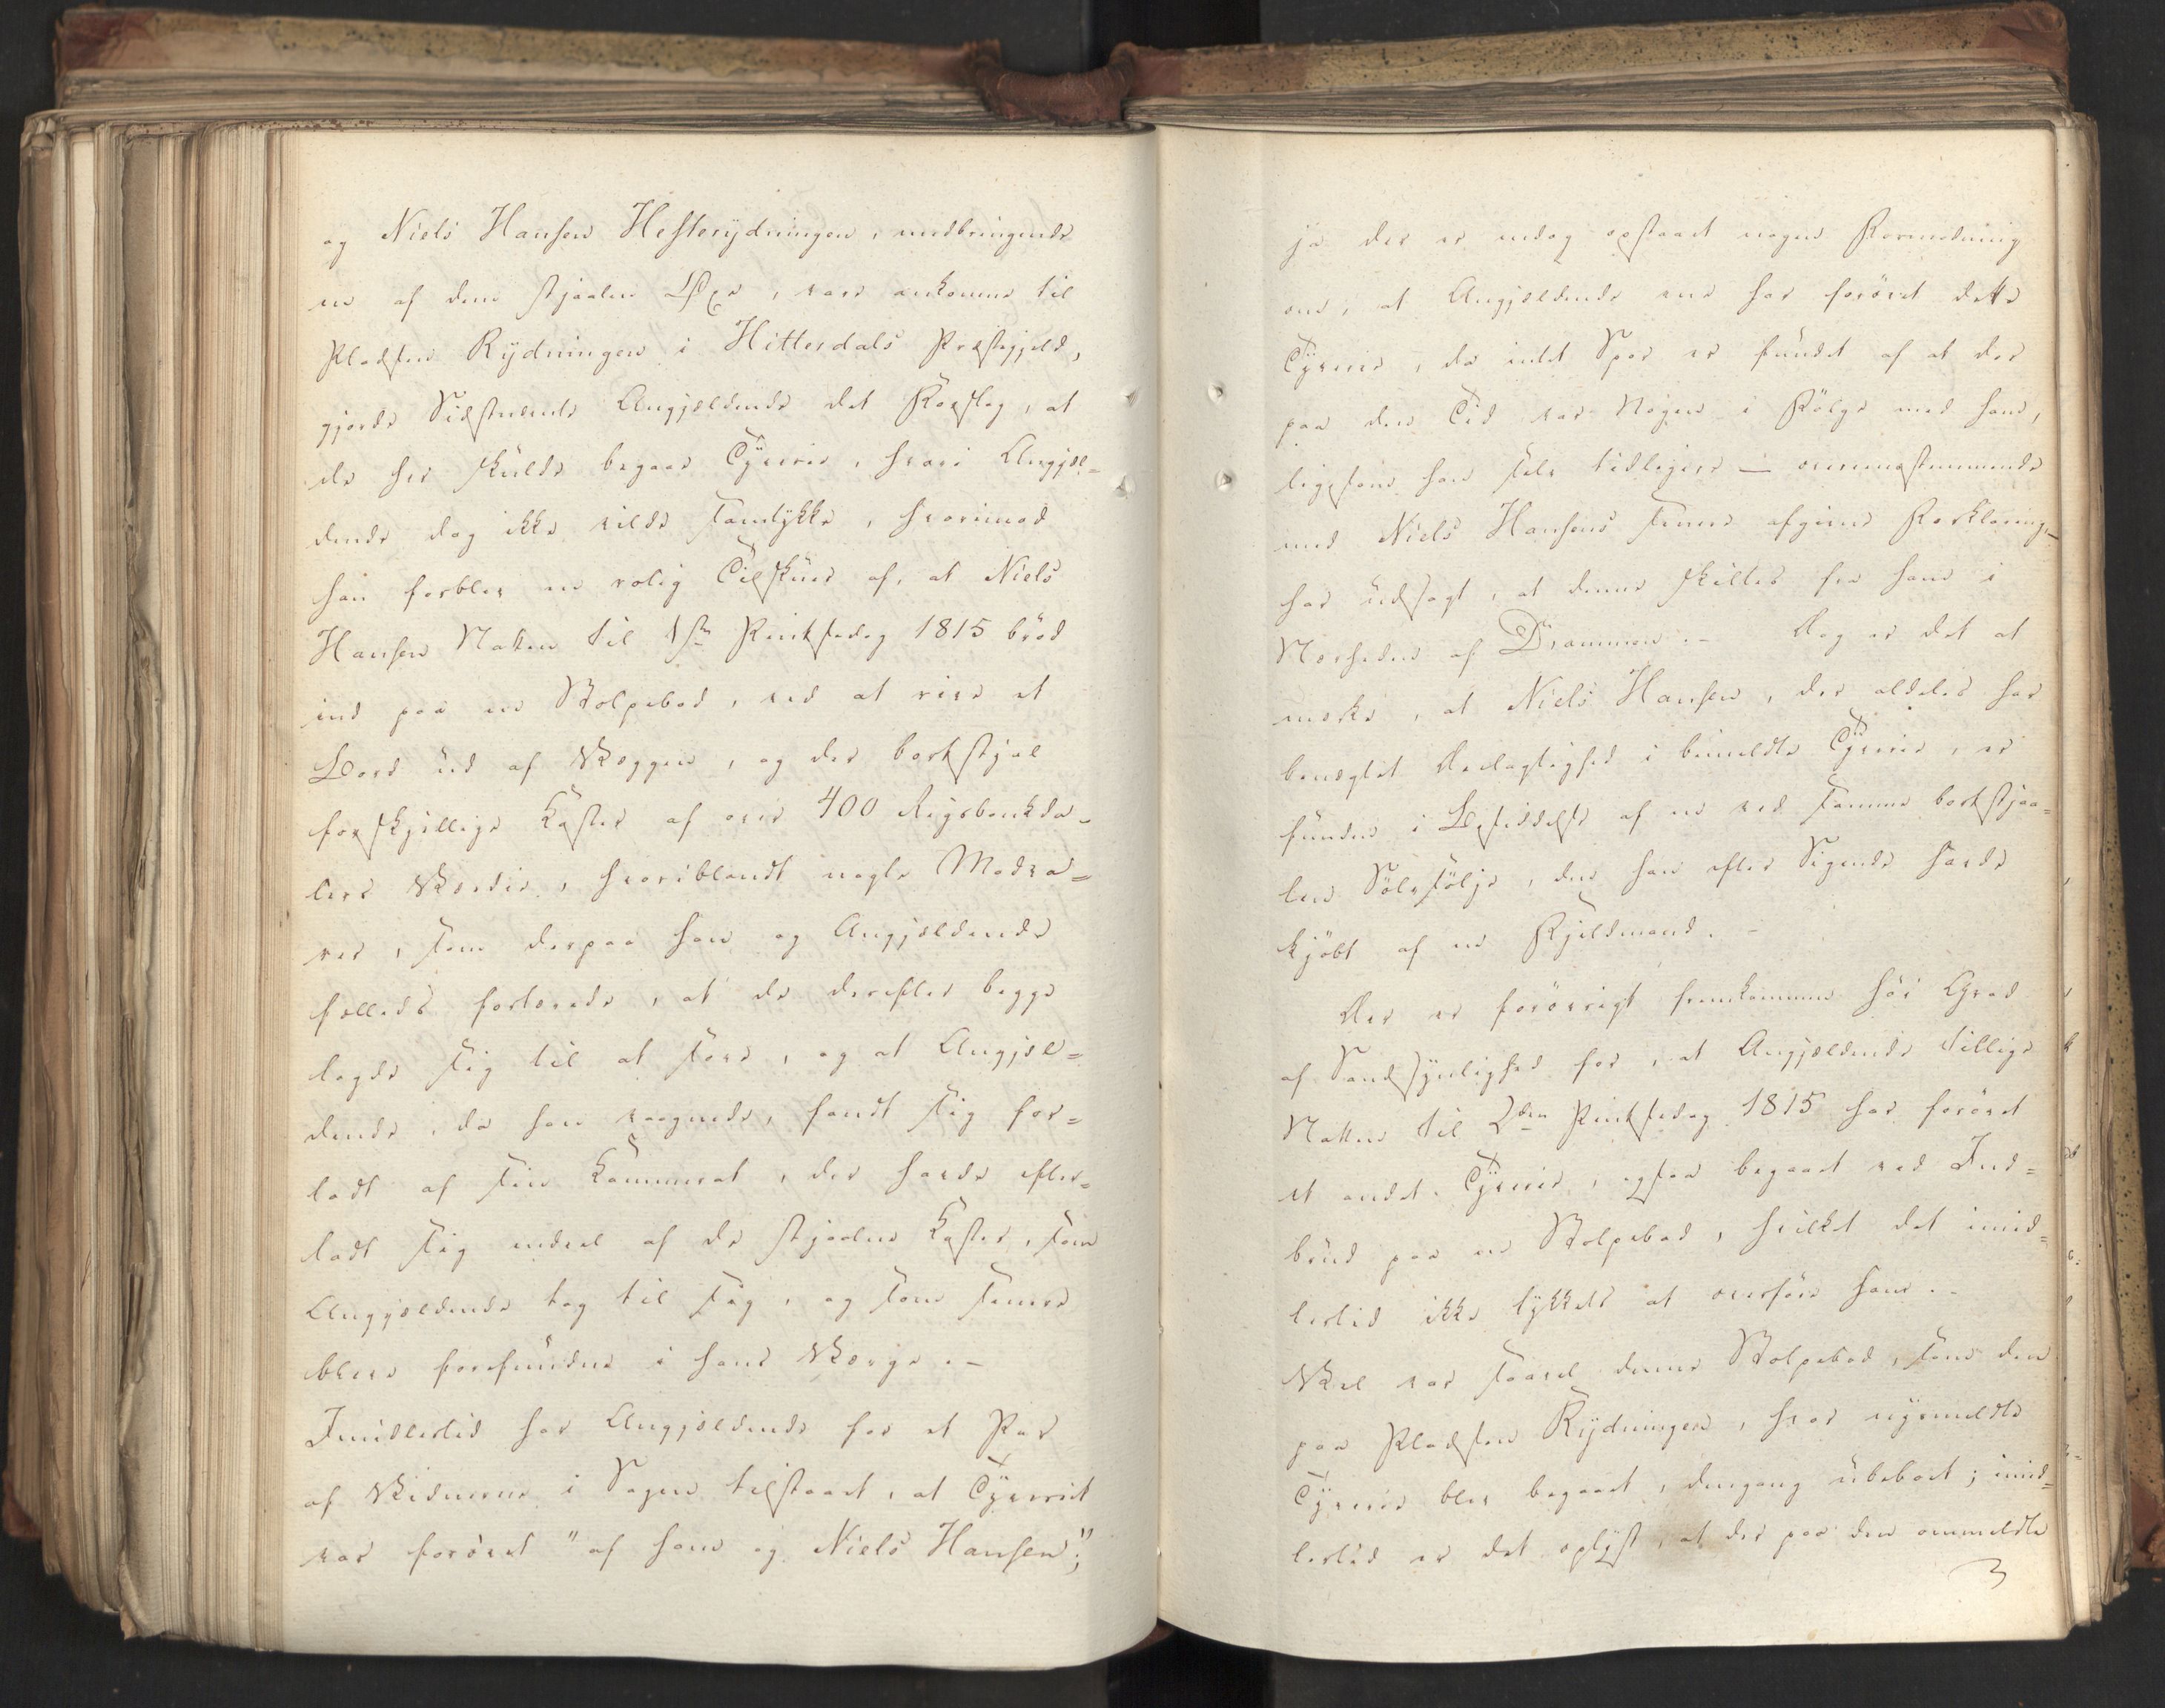 og Niels Hansen Hesterÿdningen, medbringende
en af dem stjaalen Øxe, vare ankomne til
Pladsen Rÿdningen i Hitterdals Præstegjeld,
gjorde Sidstnævnte Angjældende det Forslag, at
de her skulde begaae Tÿverie, hvori Angjæl=
dende dog ikke vilde samtÿkke, hvorimod
han forblev en rolig Tilskuer af, at Niels
Hansen Natten til 1ste Pintsedag 1815 bröd
ind paa en Stolpebod, ved at rive et
Bord ud af Væggen, og der bortstjal
forskjellige Koster af over 400 Rigsbankda=
lers Værdie, hvoriblandt nogle Madva=
rer, som derpaa han og Angjældende
fælleds fortærede, at de derefter begge
lagde sig til at sove, og at Angjæl=
dende, da han vaagnede, fandt sig for=
ladt af sin Kammerat, der havde efter=
ladt sig endeel af de stjaalne Koster, som
Angjældende tog til sig, og som senere
bleve forefundne i hans Værge. –
Imidlertid har Angjældende for et Par
af Vidnerne i Sagen tilstaaet, at Tÿveriet
var forövet "af ham og Niels Hansen";
ja der er endog opstaaet nogen Formodning
om, at Angjældende ene har forövet dette
Tÿverie, da intet Spor er fundet af at der
paa den Tid var Nogen i Fölge med ham,
ligesom han selv tidligere — overeenstemmende
med Niels Hansens senere afgivne Forklaring, —
har udsagt, at denne skiltes fra ham i
Nærheden af Drammen. – Dog er det at
mærke, at Niels Hansen, der aldeles har
benægtet Deelagtighed i bemeldte Tÿverie, er
funden i Besiddelse af en ved samme bortstjaa=
len Sölvsölje, den han efter Sigende havde
kjöbt af en Fjeldmand. –
Der er forövrigt fremkommen höi Grad
af Sandsÿnlighed for, at Angjældende tillige
Natten til 2den Pintsedag 1815 har forövet
et andet Tÿverie, ogsaa begaaet ved Ind=
brud paa en Stolpebod, hvilket det imid=
lertid ikke lÿkkedes at overföre ham. –
Vel var saavel denne Stolpebod, som den
paa Pladsen Rÿdningen, hvor nÿsmeldte
Tÿverie blev begaaet, dengang ubeboet; imid=
lertid er det oplÿst, at der paa den ommeldte
3